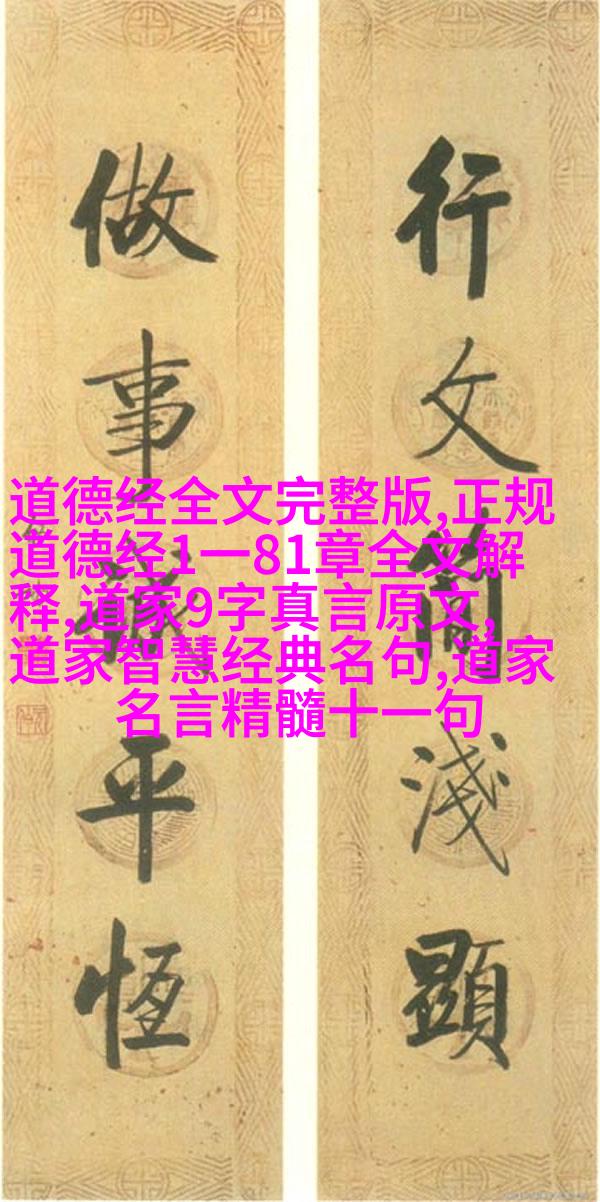 行文簡淺顯
做事誠平恆
道德经全文完整版,正规
道德经1一81章全文解
释,道家9字真言原文,
道家智慧经典名句,道家
名言精髓十一句